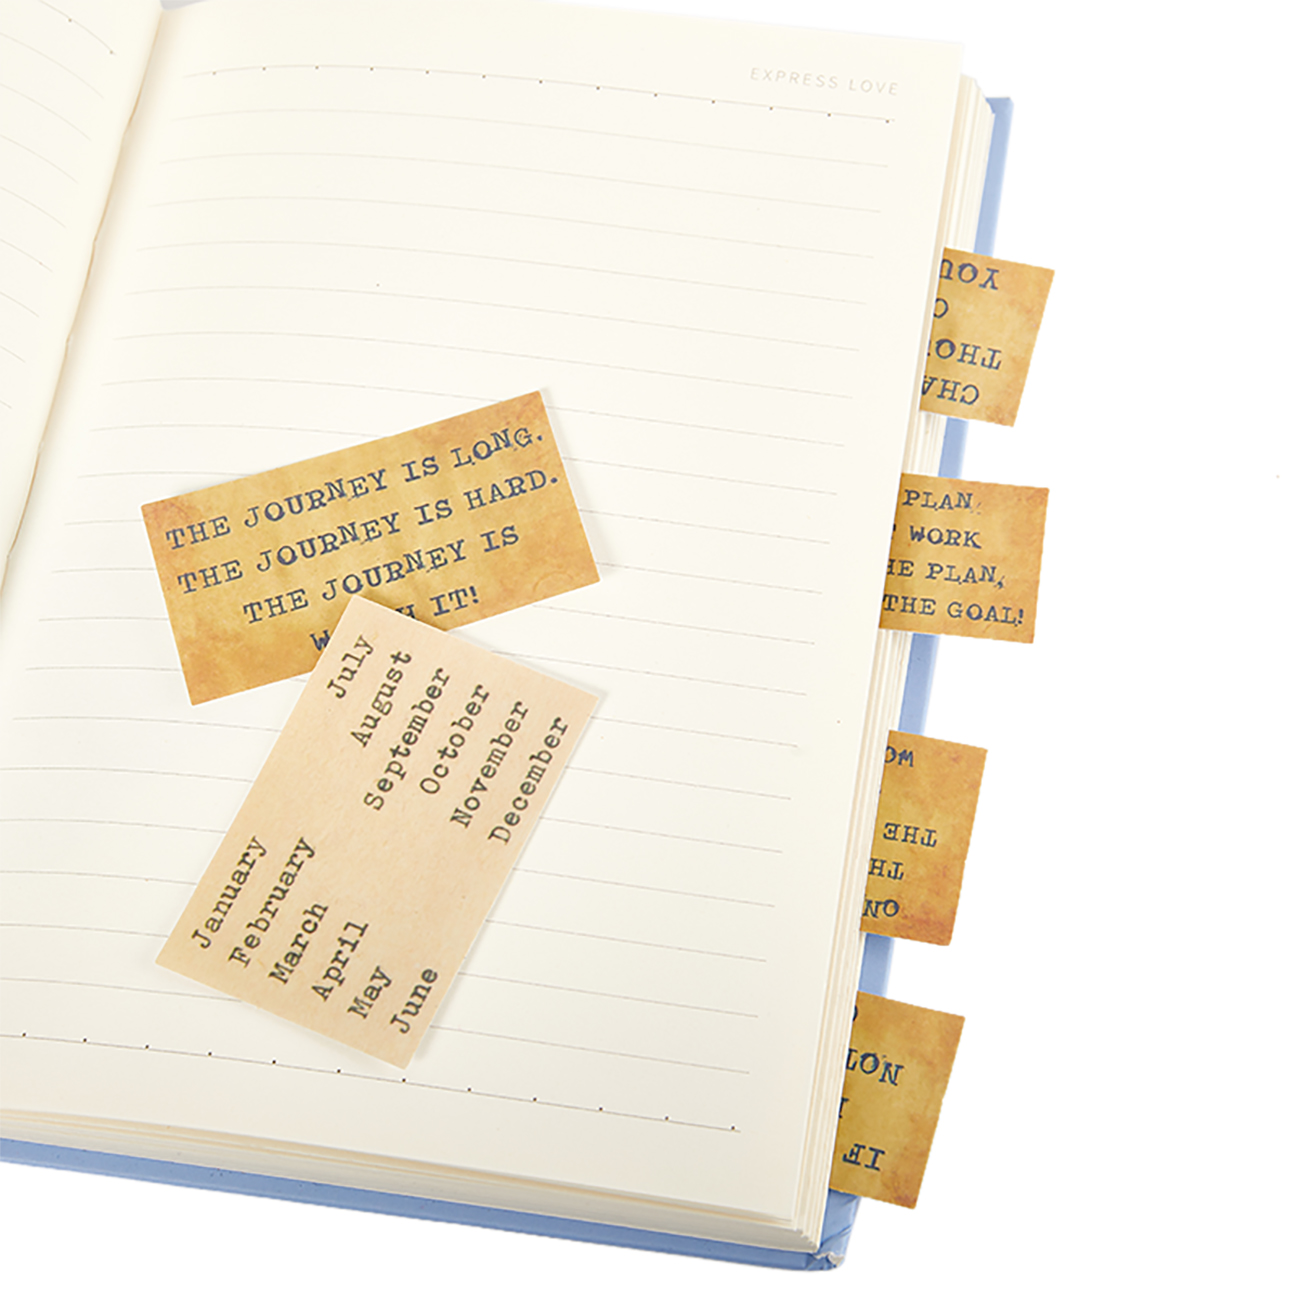 EXPRESS LOVE
THE JOURNEY IS LONG.
THE JOURNEY IS HARD.
THE JOURNEY IS
IT!
July
August
September
October
November
December
January
February
March
April
May
June
YOU
PLAN,
WORK
PLAN,
THE GOAL!
THE
ON
NOT
IF